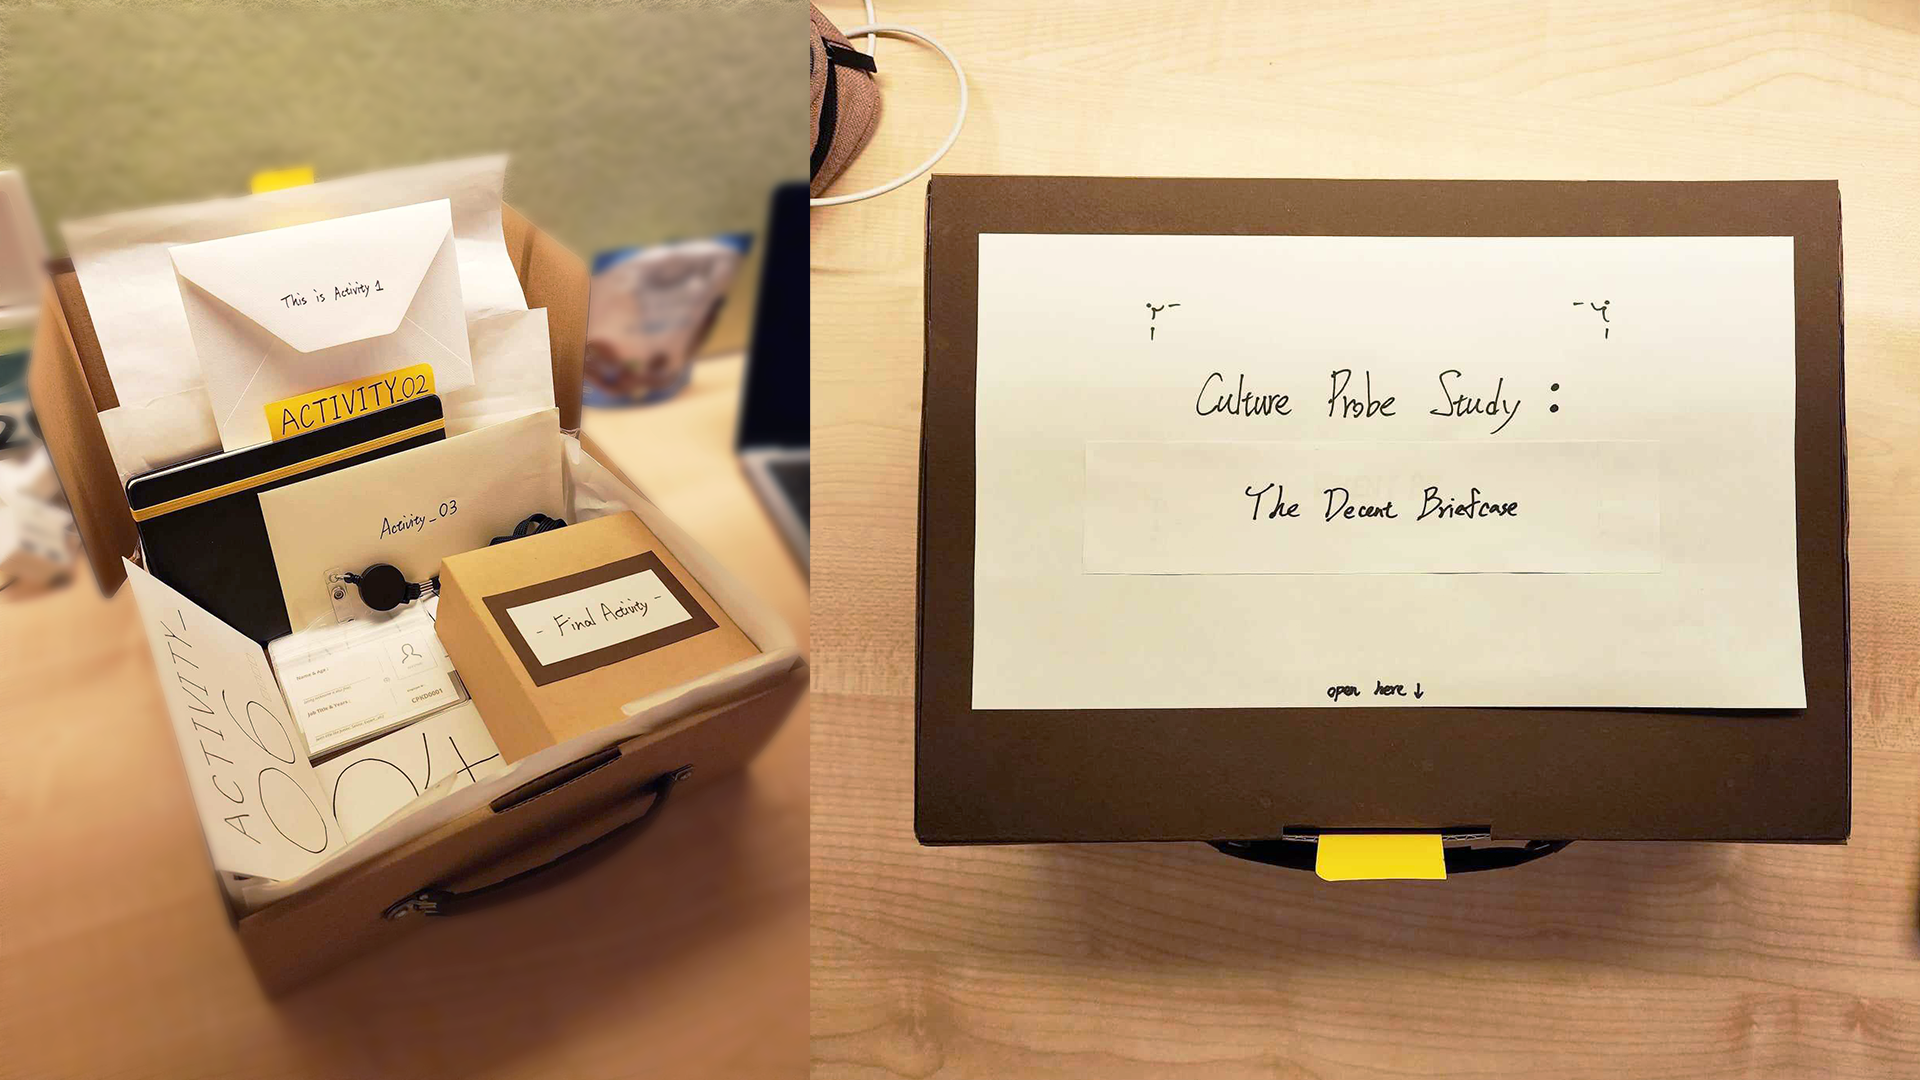 This is Activity 1
ACTIVITY_02
Activity_03
- Final Activity -
Name & Age :
Job Title & Years :
CPKD0001
ACTIVITY_
06
04
Culture Probe Study :
The Decent Briefcase
open here ↓